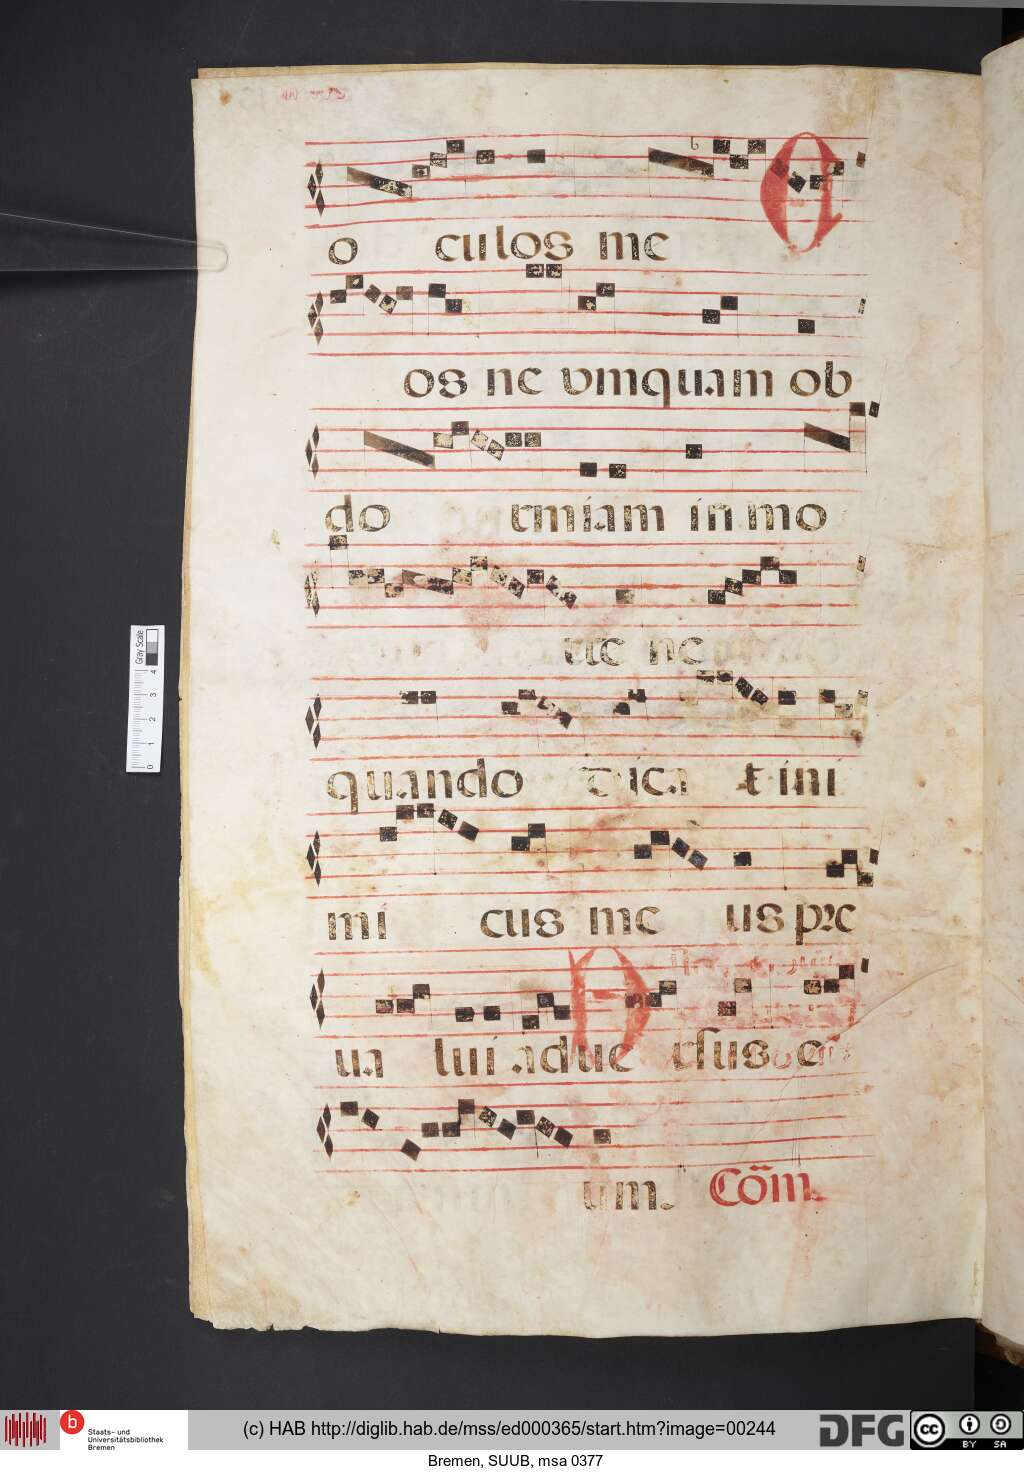 o culos me
os ne vmquam ob
do rmiam in mo
rte ne
quando dica t ini
mi cus me us pre
ua lui adue rsus e
um. Cōm.
Gray Scale
0 1 2 3 4
b Staats- und
Universitätsbibliothek
Bremen
(c) HAB http://diglib.hab.de/mss/ed000365/start.htm?image=00244
DFG
cc BY SA
Bremen, SUUB, msa 0377